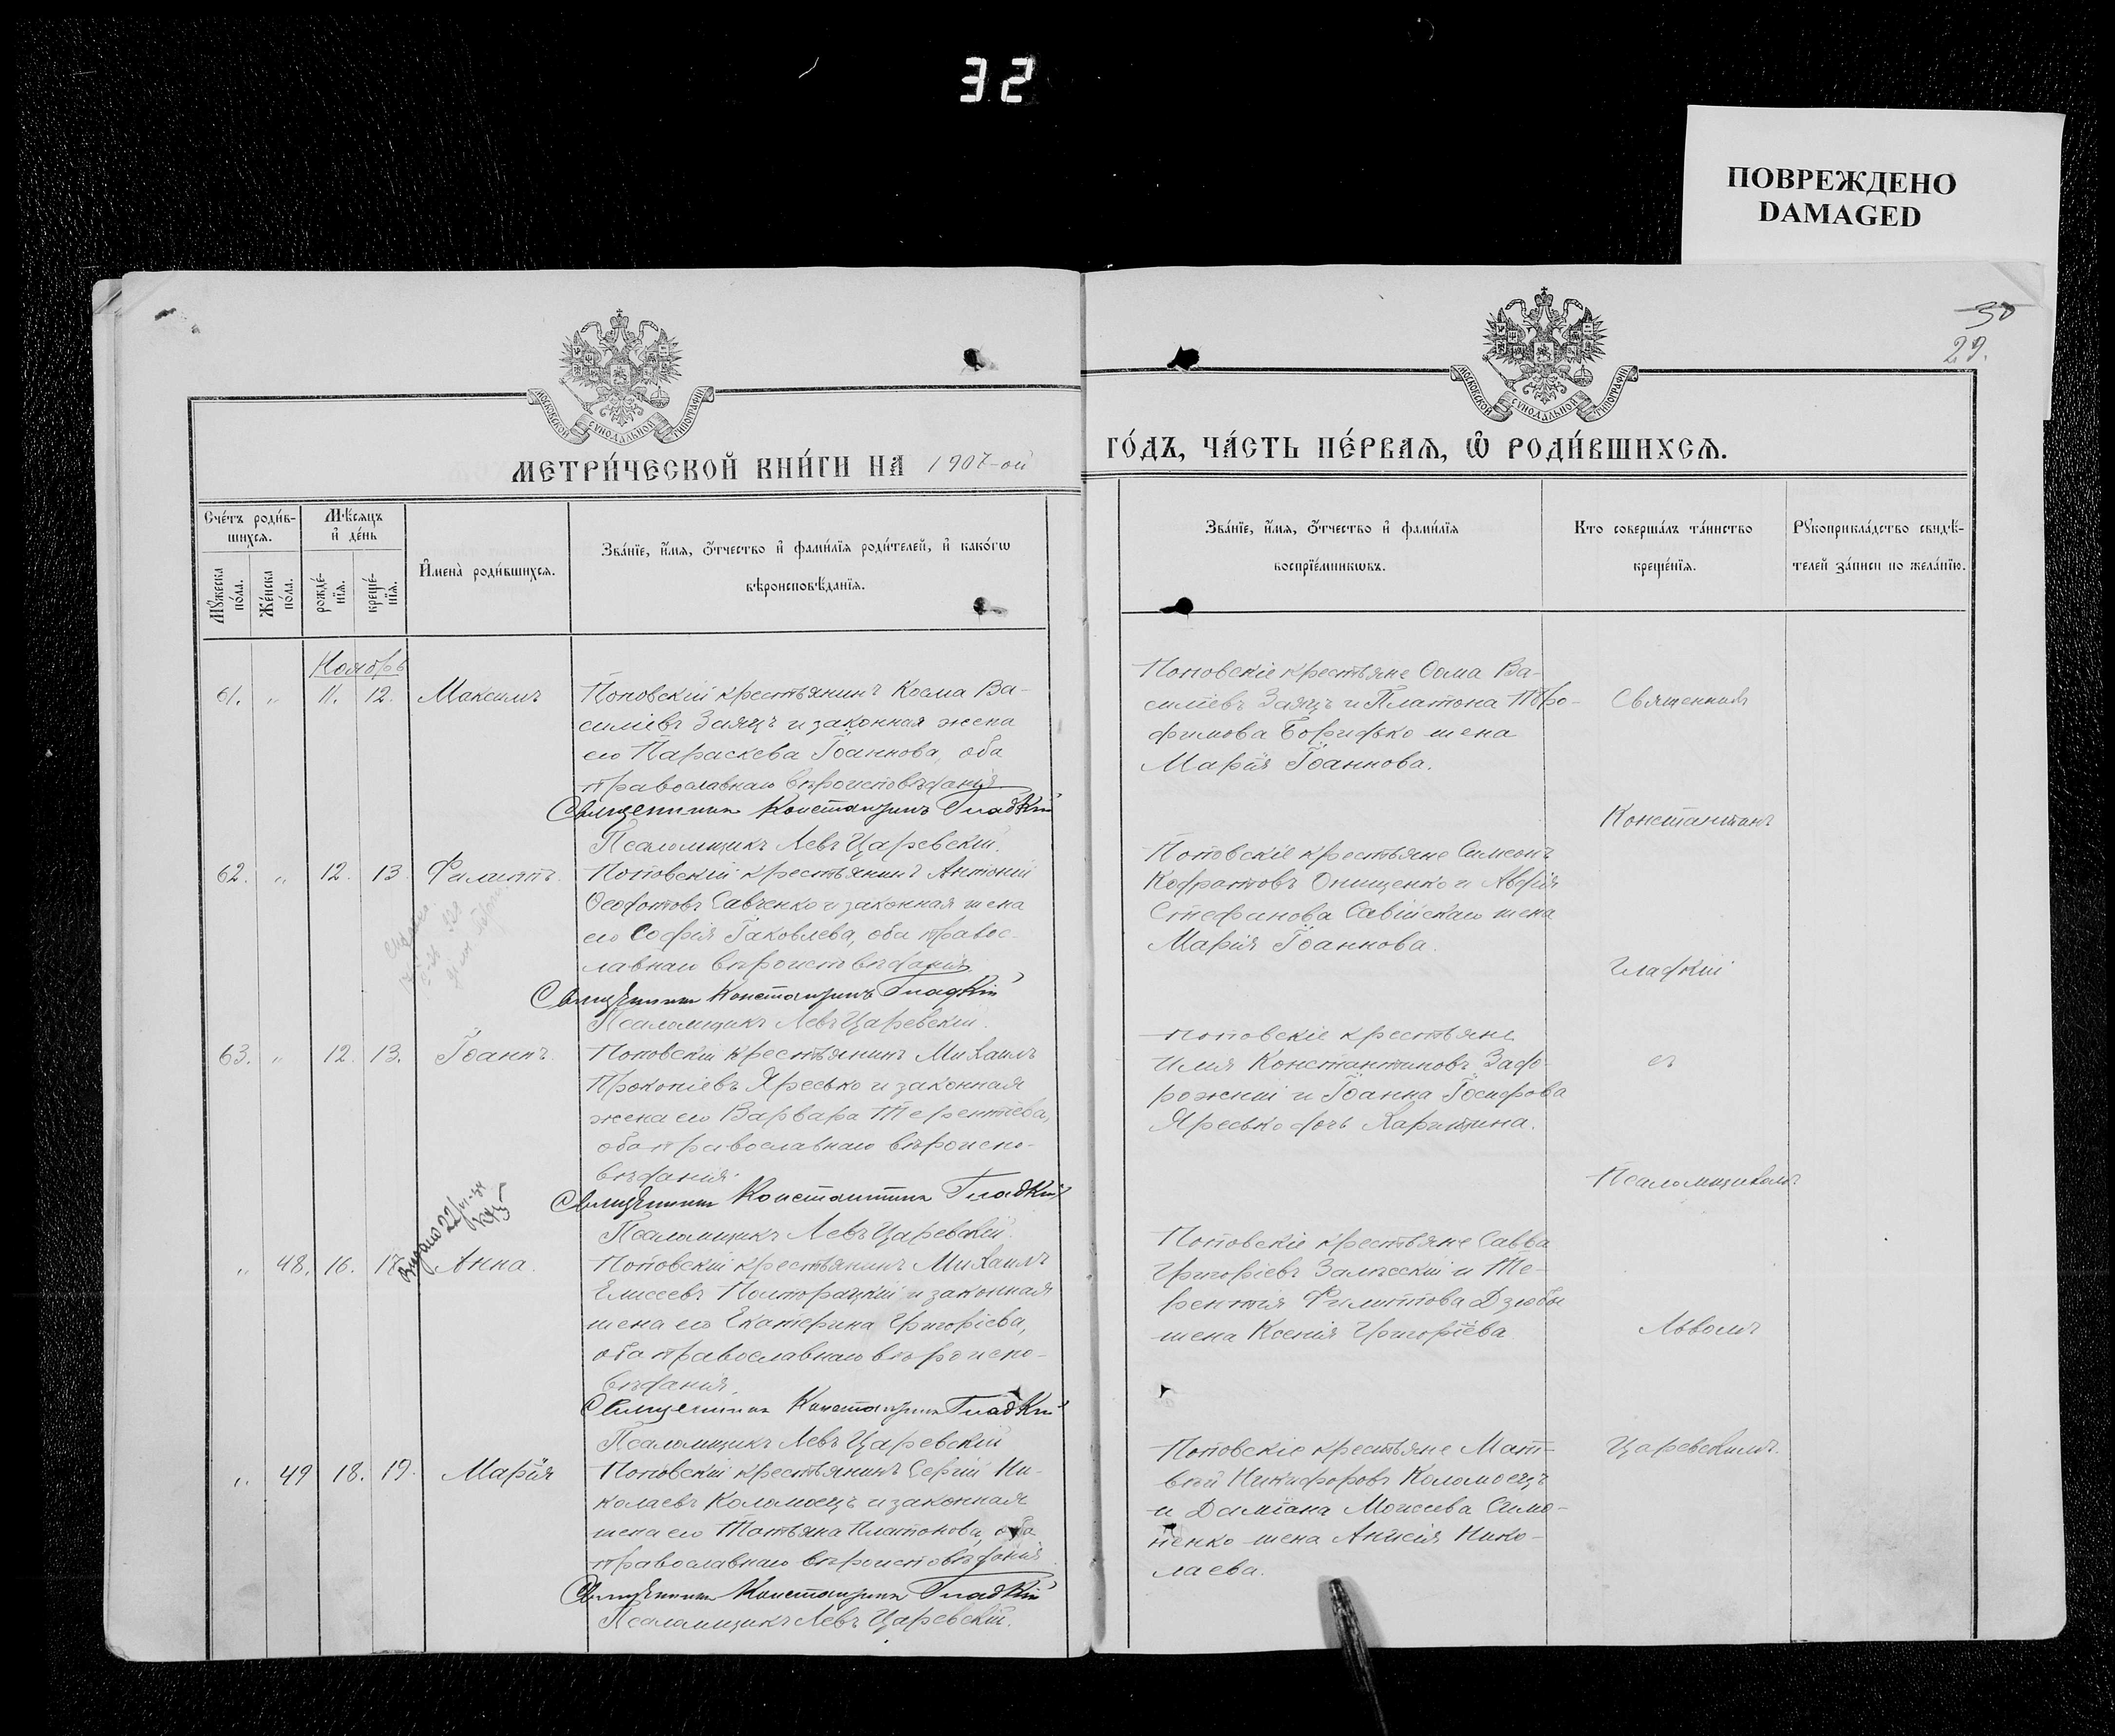 32
ПОВРЕЖДЕНО
DAMAGED
30
29.
МОСКОВСКОЙ СѴНОДАЛЬНОЙ ТИПОГРАФІИ
МОСКОВСКОЙ СѴНОДАЛЬНОЙ ТИПОГРАФІИ
МЕТРИ́ЧЕСКОЙ КНИ́ГИ НА 1907-ой
ГО́ДЪ, ЧА́СТЬ ПЕ́РВАЯ, Ѿ РОДИ́ВШИХСЯ.
Сче́тъ роди́в-
шихся.
Мѣ́сяцъ
и҆ де́нь
Мꙋ́жеска
по́ла.
Же́нска
по́ла.
рожде́-
нїя.
креще́-
нїя.
И҆мена̀ роди́вшихся.
Зва́нїе, и҆́мя, ѻ҆́тчество и҆ фами́лїя роди́телей, и҆ како́гѡ
вѣроисповѣ́данїя.
Зва́нїе, и҆́мя, ѻ҆́тчество и҆ фами́лїя
воспрїе́мникѡвъ.
Кто соверша́лъ та́инство
креще́нїя.
Рꙋкоприкла́дство свидѣ́-
телей за́писи по жела́нїю.
Ноябрь
61. „ 11. 12. Максимъ
Поповскій крестьянинъ Косма Ва-
силіевъ Заяцъ и законная жена
его Параскева Іоаннова, оба
православнаго вѣроисповѣданія
Священникъ Константинъ Гладкій
Псаломщикъ Левъ Царевскій.
Поповскіе крестьяне Ѳома Ва-
силіевъ Заяцъ и Платона Тро-
фимова жена
Марія Іоаннова.
62. „ 12. 13. Филиппъ.
Поповскій крестьянинъ Антоній
Ѳеофотовъ Савченко и законная жена
его Софія Іаковлева, оба правос-
лавнаго вѣроисповѣданія.
Священникъ Константинъ Гладкій
Псаломщикъ Левъ Царевскій.
Поповскіе крестьяне Симеонъ
Кодратовъ Онищенко и
Стефанова жена
Марія Іоаннова.
63. „ 12. 13. Іоаннъ.
Поповскій крестьянинъ Михаилъ
Прокопіевъ Яресько и законная
жена его Варвара Терентіева,
оба православнаго вѣроиспо-
вѣданія.
Священникъ Константинъ Гладкій
Псаломщикъ Левъ Царевскій.
Поповскіе крестьяне
Илія Константиновъ Запо-
рожній и Іоанна Іосифова
Яресько дочь Харитина.
Выдано 22
„ 48. 16. 17. Анна.
Поповскій крестьянинъ Михаилъ
Елисеевъ Полторацкій и законная
жена его Екатерина Григоріева,
оба православнаго вѣроиспо-
вѣданія.
Священникъ Константинъ Гладкій
Псаломщикъ Левъ Царевскій
Поповскіе крестьяне Савва
Григоріевъ Залѣсскій и Те-
рентія Филиппова Дзюбы
жена Ксенія Григоріева
„ 49 18. 19. Марія
Поповскій крестьянинъ Сергій Ни-
колаевъ Коломоецъ и законная
жена его Татьяна Платонова, оба
православнаго вѣроисповѣданія
Священникъ Константинъ Гладкій
Псаломщикъ Левъ Царевскій.
Поповскіе крестьяне Мат-
вѣй Никифоровъ Коломоецъ
и Даміана Моисеева Симо-
ненко жена Анисія Нико-
лаева.
Священникъ
Константинъ
Гладкій
съ
Псаломщикомъ
Львомъ
Царевскимъ.